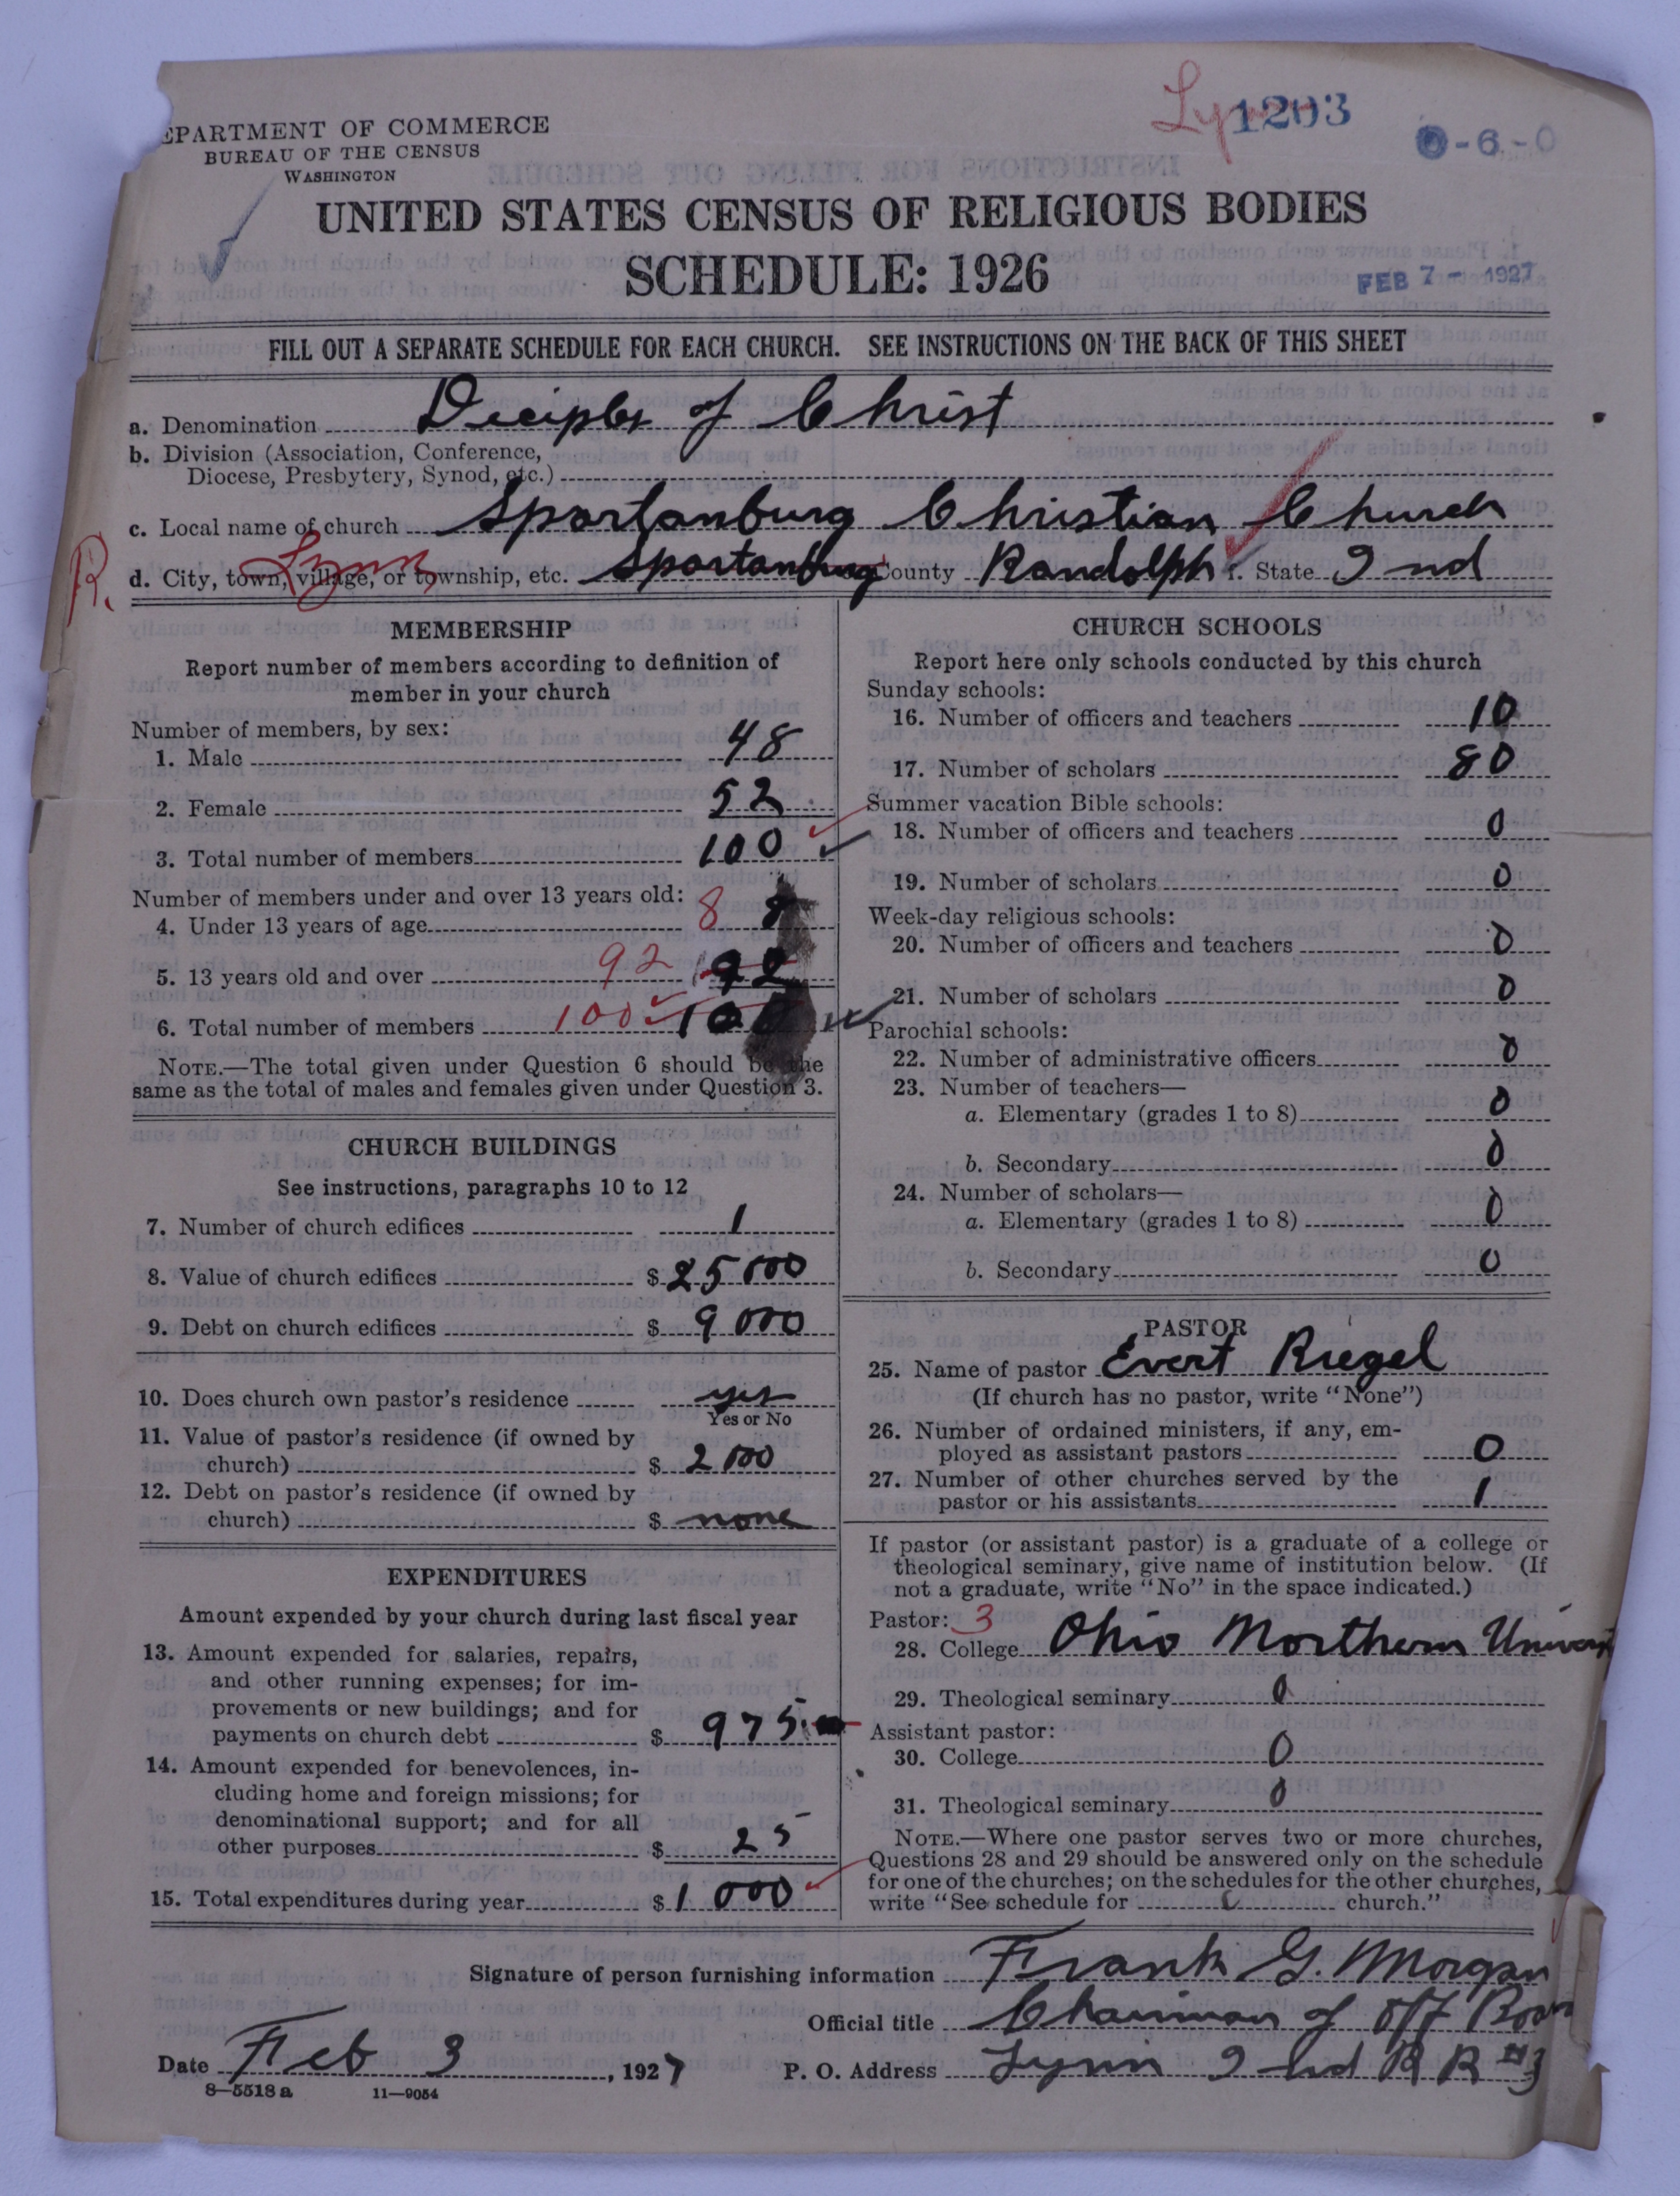 Lynn 1203
0-6-0
EPARTMENT OF COMMERCE
BUREAU OF THE CENSUS
WASHINGTON
UNITED STATES CENSUS OF RELIGIOUS BODIES
SCHEDULE: 1926
FEB 7 - 1927
FILL OUT A SEPARATE SCHEDULE FOR EACH CHURCH. SEE INSTRUCTIONS ON THE BACK OF THIS SHEET
a. Denomination Deciples of Christ
b. Division (Association, Conference,
Diocese, Presbytery, Synod, etc.)
c. Local name of church Spartanburg Christian Church
R. Lynn
d. City, town, village, or township, etc. Spartanburg County Randolph f. State Ind
MEMBERSHIP
Report number of members according to definition of
member in your church
Number of members, by sex:
1. Male 48
2. Female 52
3. Total number of members 100
Number of members under and over 13 years old:
4. Under 13 years of age 8 8
5. 13 years old and over 92 92
6. Total number of members 100 100
NOTE.—The total given under Question 6 should be the
same as the total of males and females given under Question 3.
CHURCH BUILDINGS
See instructions, paragraphs 10 to 12
7. Number of church edifices 1
8. Value of church edifices $ 25 000
9. Debt on church edifices $ 9 000
10. Does church own pastor's residence yes
Yes or No
11. Value of pastor's residence (if owned by
church) $ 2 000
12. Debt on pastor's residence (if owned by
church) $ none
EXPENDITURES
Amount expended by your church during last fiscal year
13. Amount expended for salaries, repairs,
and other running expenses; for im-
provements or new buildings; and for
payments on church debt $ 975
14. Amount expended for benevolences, in-
cluding home and foreign missions; for
denominational support; and for all
other purposes $ 25
15. Total expenditures during year $ 1 000
CHURCH SCHOOLS
Report here only schools conducted by this church
Sunday schools:
16. Number of officers and teachers 10
17. Number of scholars 80
Summer vacation Bible schools:
18. Number of officers and teachers 0
19. Number of scholars 0
Week-day religious schools:
20. Number of officers and teachers 0
21. Number of scholars 0
Parochial schools:
22. Number of administrative officers 0
23. Number of teachers—
a. Elementary (grades 1 to 8) 0
b. Secondary 0
24. Number of scholars—
a. Elementary (grades 1 to 8) 0
b. Secondary 0
PASTOR
25. Name of pastor Evert Riegel
(If church has no pastor, write "None")
26. Number of ordained ministers, if any, em-
ployed as assistant pastors 0
27. Number of other churches served by the
pastor or his assistants 1
If pastor (or assistant pastor) is a graduate of a college or
theological seminary, give name of institution below. (If
not a graduate, write "No" in the space indicated.)
Pastor: 3
28. College Ohio Northern
29. Theological seminary 0
Assistant pastor:
30. College 0
31. Theological seminary 0
NOTE.—Where one pastor serves two or more churches,
Questions 28 and 29 should be answered only on the schedule
for one of the churches; on the schedules for the other churches,
write "See schedule for church."
Signature of person furnishing information Frank G. Morgan
Official title Chairman of off Board
Date Feb 3, 1927 P. O. Address Lynn Ind R R #3
8—5518 a 11—9054